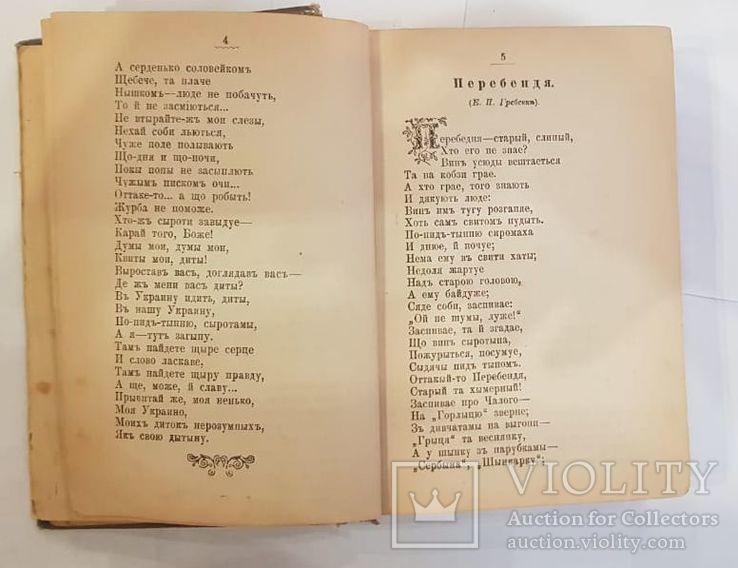 4
А серденько соловейкомъ
Щебече, та плаче
Нышкомъ—люде не побачуть,
То й не засміються...
Не втырайте-жъ мои слезы,
Нехай соби льються,
Чуже поле поливають
Що-дня и що-ночи,
Покы попы не засыплють
Чужымъ пискомъ очи...
Оттаке-то... а що робыть!
Журба не поможе.
Хто-жъ сыроти завыдуе—
Карай того, Боже!
Думы мои, думы мои,
Квиты мои, диты!
Выроставъ васъ, доглядавъ васъ—
Де жъ мени васъ диты?
Въ Украину идить, диты,
Въ нашу Украину,
По-пидъ-тынню, сыротамы,
А я—тутъ загыну.
Тамъ найдете щыре серце
И слово ласкаве,
Тамъ найдете щыру правду,
А ще, може, й славу...
Прывитай же, моя ненько,
Моя Украино,
Моихъ дитокъ нерозумныхъ,
Якъ свою дытыну.
5
Перебендя.
(Е. П. Гребенкѣ).
Перебендя—старый, слипый,
Хто его не знае?
Винъ усюды вештається
Та на кобзи грае.
А хто грае, того знають
И дякують люде:
Винъ имъ тугу розганяе,
Хоть самъ свитомъ нудыть.
По-пидъ-тынню сиромаха
И днюе, й ночуе;
Нема ему въ свити хаты;
Недоля жартуе
Надъ старою головою,
А ему байдуже;
Сяде соби, заспивае:
„Ой не шумы, луже!"
Заспивае, та й згадае,
Що винъ сыротына,
Пожурыться, посумуе,
Сыдячы пидъ тыномъ.
Оттакый-то Перебендя,
Старый та хымерный!
Заспивае про Чалого—
На „Горлыцю" зверне;
Зъ дивчатамы на выгони—
„Грыця" та веснянку,
А у шынку зъ парубкамы—
„Сербына", „Шынкарку";
VIOLITY
Auction for Collectors
auction.violity.com